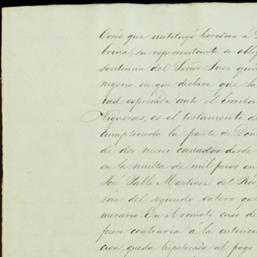 Coné que instituyó heredera á D
berna, su representante a
sentencia del Señor Juez quin
negocio en que declare que la
tad espresada ante el Escriba
Nigueras, es el testamento de
cumpliendo la parte de Doñ
de dos meses contados desde
en la multa de mil pesos en
José Pablo Martinez del Rio
sar del segundo entero que
merario. En el remoto caso de
fuere contraria á la intencio
cion, queda hipotecada al pago